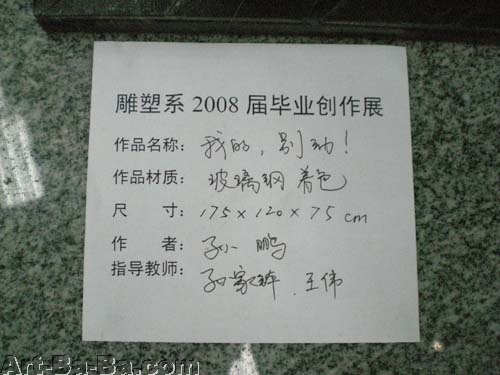 雕塑系 2008 届毕业创作展
作品名称: 我的,别动!
作品材质: 玻璃钢 着色
尺 寸: 175 × 120 × 75 cm
作 者: 孙鹏
指导教师: 孙家钵 . 王伟
Art-Ba-Ba.com
Art-Ba-Ba.com